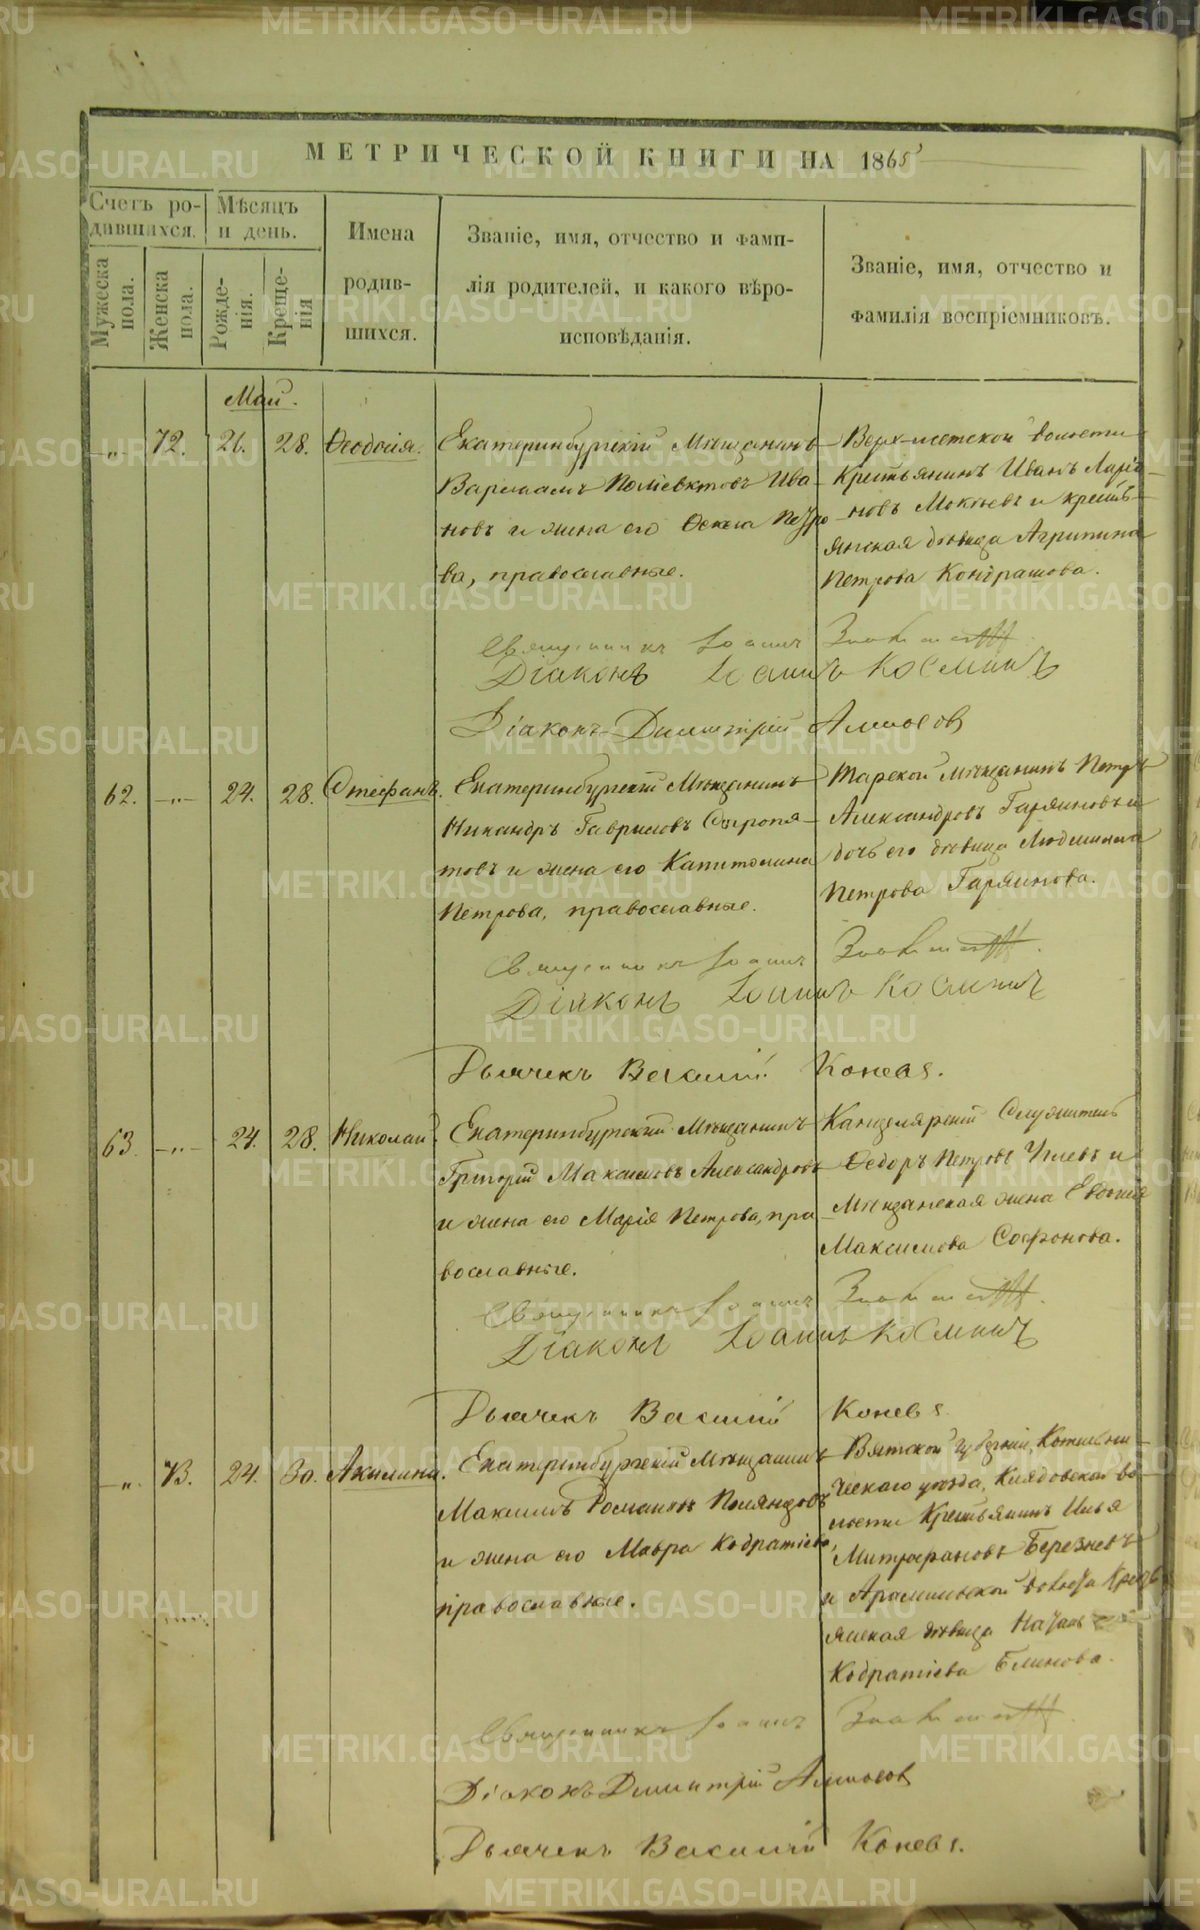 МЕТРИЧЕСКОЙ КНИГИ НА 1865
Счетъ ро-
дившихся.
Мѣсяцъ
и день.
Мужеска
пола.
Женска
пола.
Рожде-
нія.
Креще-
нія
Имена
родив-
шихся.
Званіе, имя, отчество и фами-
лія родителей, и какого вѣро-
исповѣданія.
Званіе, имя, отчество и
фамилія воспріемниковъ.
Май.
-"- 72. 21. 28. Ѳеодосія.
Екатеринбургскій Мѣщанинъ
Варлаамъ Поліевктовъ Ива-
новъ и жена его Петро
ва, православные.
Верх-исетской волости
Крестьянинъ Иванъ Ларіо-
новъ Мокѣевъ и кресть-
янская дѣвица Агрипина
Петрова Кондрашова.
Священникъ Іоаннъ
Діаконъ Іоаннъ Косминъ
Діаконъ Димитрій Аммосов
62. -"- 24. 28. Стефанъ.
Екатеринбургскій Мѣщанинъ
Никандръ Гавриловъ Сыропя-
товъ и жена его Капитолина
Петрова, православные.
Тарской мѣщанинъ Петръ
Александровъ Гаряиновъ и
дочь его дѣвица Людмила
Петрова Гаряинова.
Священникъ Іоаннъ
Діаконъ Іоаннъ Косминъ
Дьячекъ Василій Коневъ.
63. -"- 24. 28. Николай.
Екатеринбургскій Мѣщанинъ
Григорій Максимовъ Александровъ
и жена его Марія Петрова, пра
вославные.
Канцелярскій Служитель
Ѳедоръ Петровъ и
Мѣщанская жена Евдокія
Максимова Софонова.
Священникъ Іоаннъ
Діаконъ Іоаннъ Косминъ
Дьячекъ Василій Коневъ
-"- 73. 24. 30. Акилина.
Екатеринбургскій Мѣщанинъ
Максимъ Романовъ
и жена его Мавра Кодратіева,
православные.
Вятской губерніи, Котельни-
ческаго уѣзда, во-
лости Крестьянинъ Илья
Митрофановъ Березневъ
и Арамильской волости Кресть
янская дѣвица
Кодратіева Блинова.
Священникъ Іоаннъ
Діаконъ Димитрій Аммосов
Дьячекъ Василій Коневъ.
METRIKI.GASO-URAL.RU